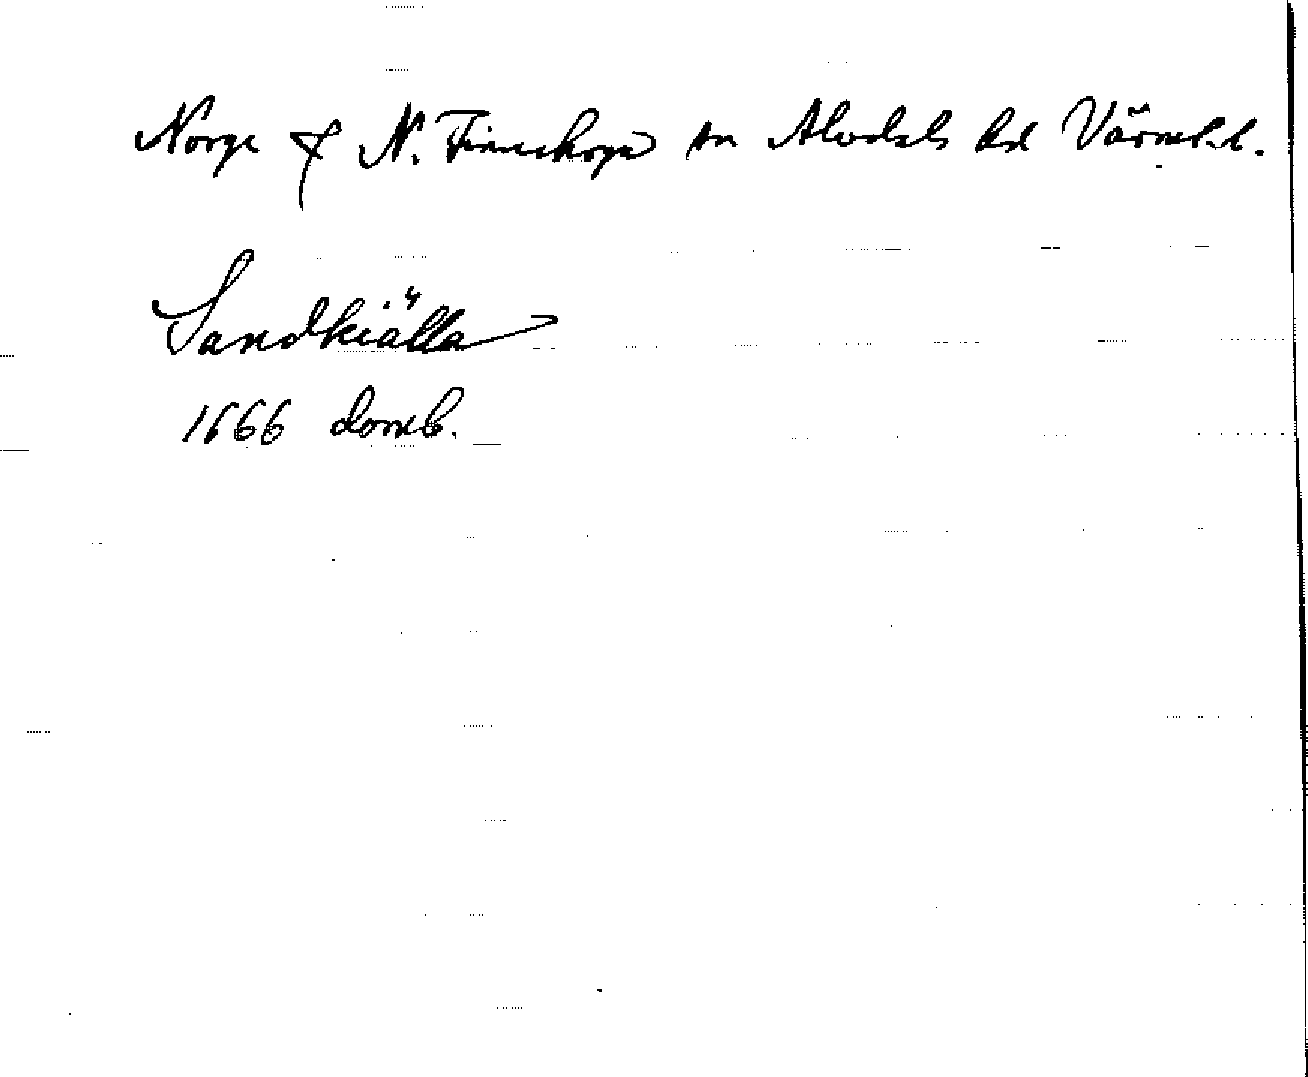 Norge f N. Finnskoga sn Älvdals hd Värml.
Sandkiälla
1666 domb.